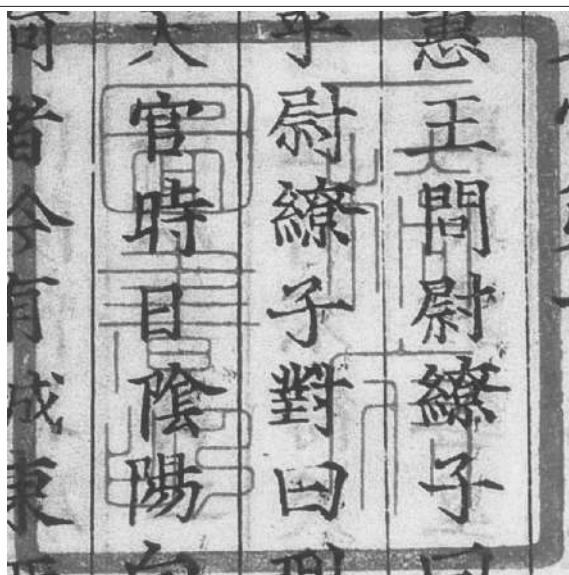 惠王問尉繚子曰
乎尉繚子對曰刑
天官時日陰陽向
何者今有城東